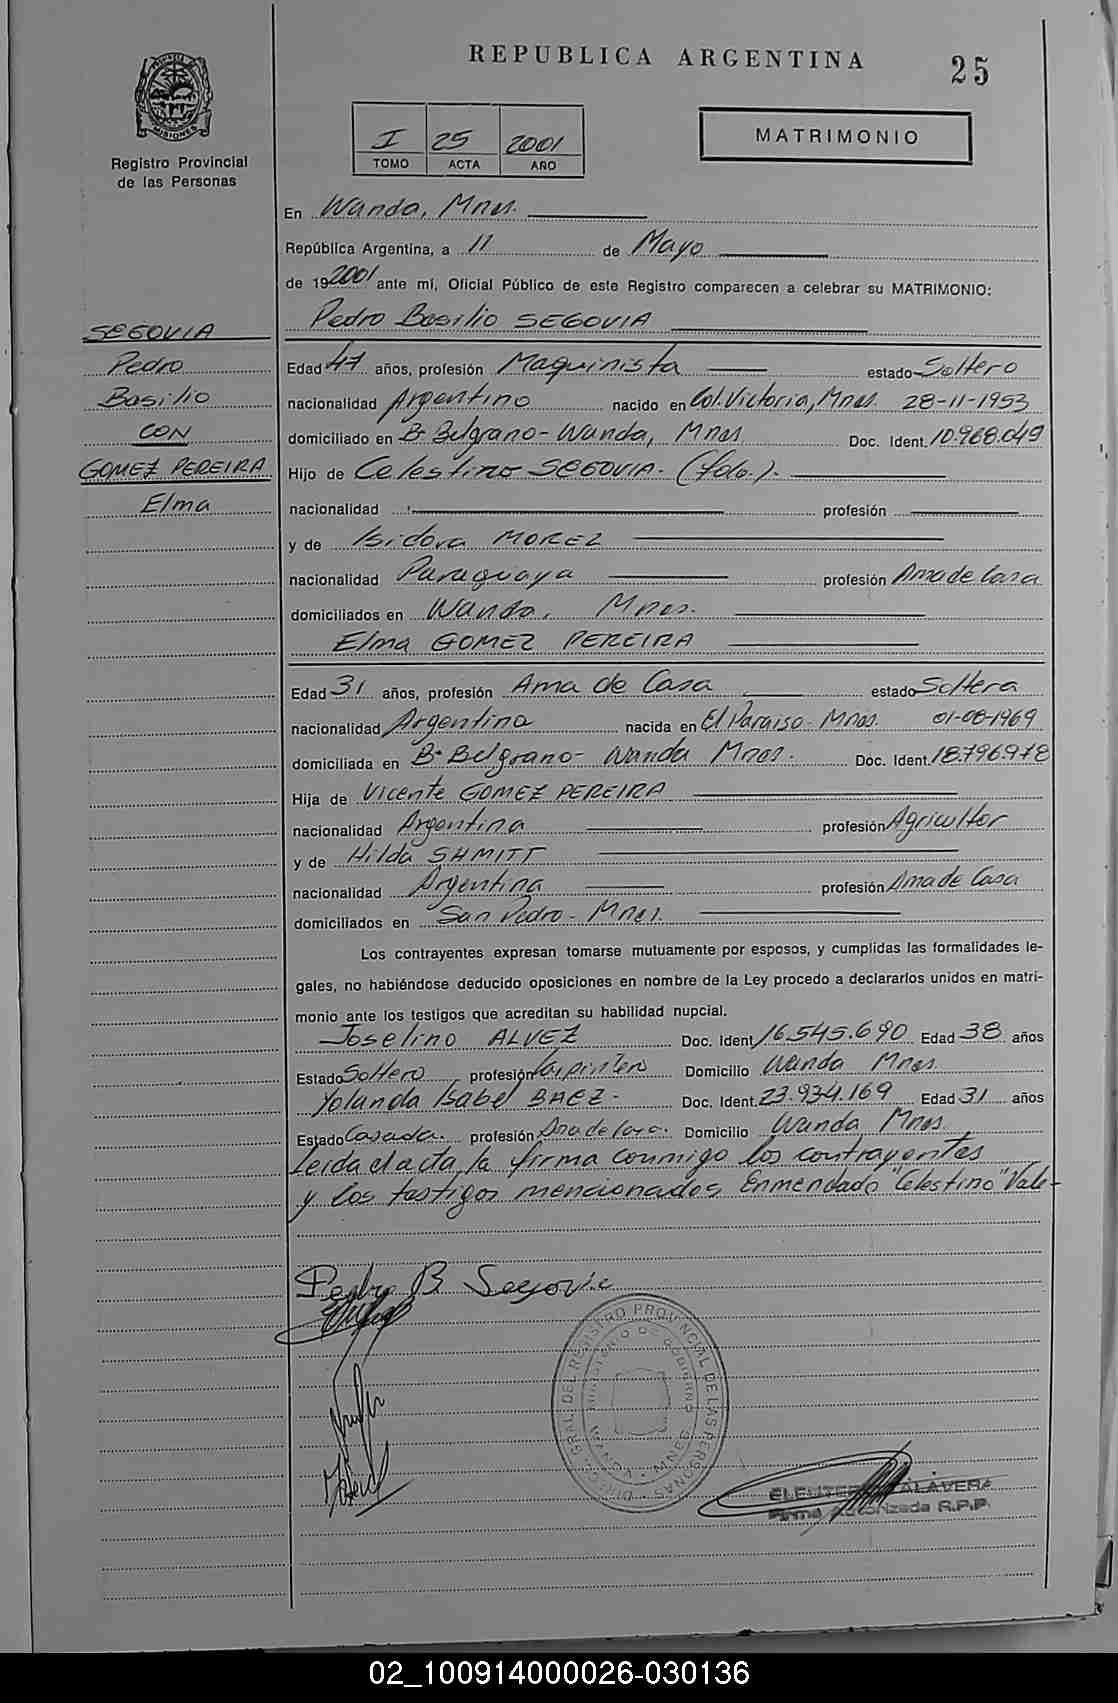 REPUBLICA ARGENTINA
25
MISIONES
Registro Provincial
de las Personas
I 25 2001
TOMO ACTA AÑO
MATRIMONIO
En Wanda, Mnes.
República Argentina, a 11 de Mayo
de 192001 ante mí, Oficial Público de este Registro comparecen a celebrar su MATRIMONIO:
Pedro Basilio SEGOVIA
SEGOVIA
Pedro
Basilio
CON
GOMEZ PEREIRA
Elma
Edad 47 años, profesión Maquinista estado Soltero
nacionalidad Argentino nacido en Col. Victoria, Mnes. 28-11-1953
domiciliado en Bº Belgrano - Wanda, Mnes. Doc. Ident. 10.968.049
Hijo de Celestino SEGOVIA. (fdo.).
nacionalidad profesión
y de Isidora MOREL
nacionalidad Paraguaya profesión Ama de Casa
domiciliados en Wanda, Mnes.
Elma GOMEZ PEREIRA
Edad 31 años, profesión Ama de Casa estado Soltera
nacionalidad Argentina nacida en El Paraiso - Mnes. 01-08-1969
domiciliada en Bº Belgrano - Wanda Mnes. Doc. Ident. 18.796.978
Hija de Vicente GOMEZ PEREIRA
nacionalidad Argentina profesión Agricultor
y de Hilda SHMITT
nacionalidad Argentina profesión Ama de Casa
domiciliados en San Pedro - Mnes.
Los contrayentes expresan tomarse mutuamente por esposos, y cumplidas las formalidades le-
gales, no habiéndose deducido oposiciones en nombre de la Ley procedo a declararlos unidos en matri-
monio ante los testigos que acreditan su habilidad nupcial.
Joselino ALVEZ Doc. Ident. 16.545.690 Edad 38 años
Estado Soltero profesión Carpintero Domicilio Wanda Mnes.
Yolanda Isabel BAEZ - Doc. Ident. 23.934.169 Edad 31 años
Estado Casada. profesión Ama de Casa. Domicilio Wanda Mnes.
Leida el acta, la firma conmigo los contrayentes
y los testigos mencionados, Enmendado "Celestino" Vale-
Pedro B Segovia
DIREC. GRAL. DEL REGISTRO PROVINCIAL DE LAS PERSONAS
MINISTERIO DE GOBIERNO
WANDA - MNES
ELEUTERIO TALAVERA
Firma Autorizada R.P.P.
02_100914000026-030136